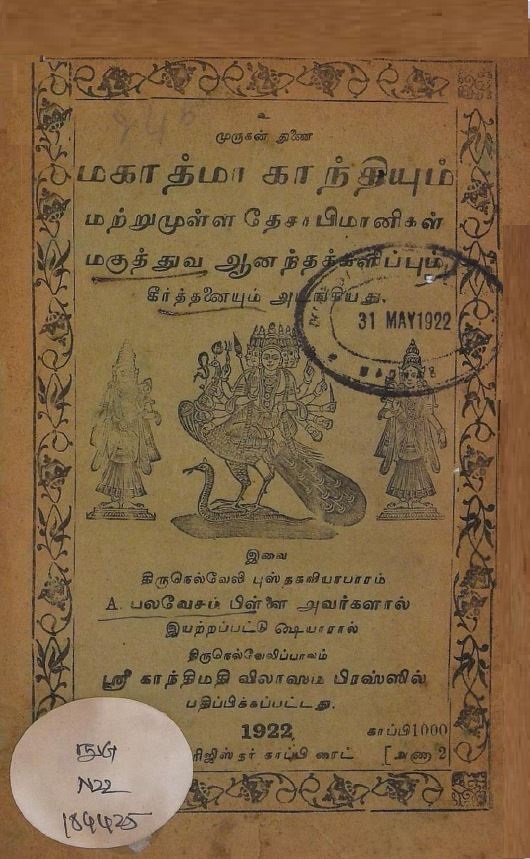 உ
முருகன் துணை
மகாத்மா காந்தியும்
மற்றுமுள்ள தேசாபிமானிகள்
மகுத்துவ ஆனந்தக்களிப்பும்
கீர்த்தனையும் அடங்கியது.
31 MAY 1922
இவை
திருநெல்வேலி புஸ்தகவியாபாரம்
A. பலவேசம் பிள்ளை அவர்களால்
இயற்றப்பட்டு ஷையாரால்
திருநெல்வேலிப்பாலம்
ஸ்ரீ காந்திமதி விலாஸம் பிரஸ்ஸில்
பதிப்பிக்கப்பட்டது.
1922 காப்பி 1000
ரிஜிஸ்தர் காப்பி ரைட் [அணா 2
N22
184425